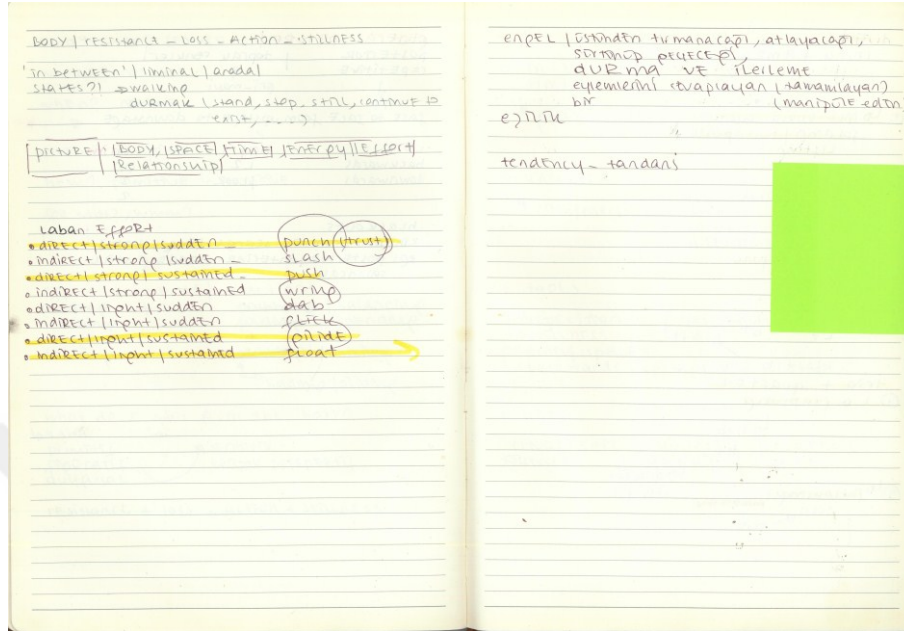 BODY | rESiStancE - LoSS - ACtion - StiLLNESS
'in bEtwEEN' | liminal | arada |
StatES?! walking
duRmak (stand, stop, still, continue to
exist, ....)
picturE : BODY, |SPACE| |timE| |Energy| |Effort|
|Relationship|
Laban EffoRt
• diREct | strong | suddEn - punch (trust)
• indiREct | strong | suddEn - sLash
• diREct | strong | sustainEd - push
• indiREct | strong | sustainEd wring
• diREct | light | suddEn dab
• indiREct | light | suddEn flick
• diREct | light | sustainEd glidE
• indiREct | light | sustainEd float
engEL | üstündEn tırmanacağı, atlayacağı,
sürtünüp gEçEcEği,
duRma vE ilerleme
eylemlerini (tamamlayan)
bir (manipülE edEn)
eşilik
tendEncy - tandans